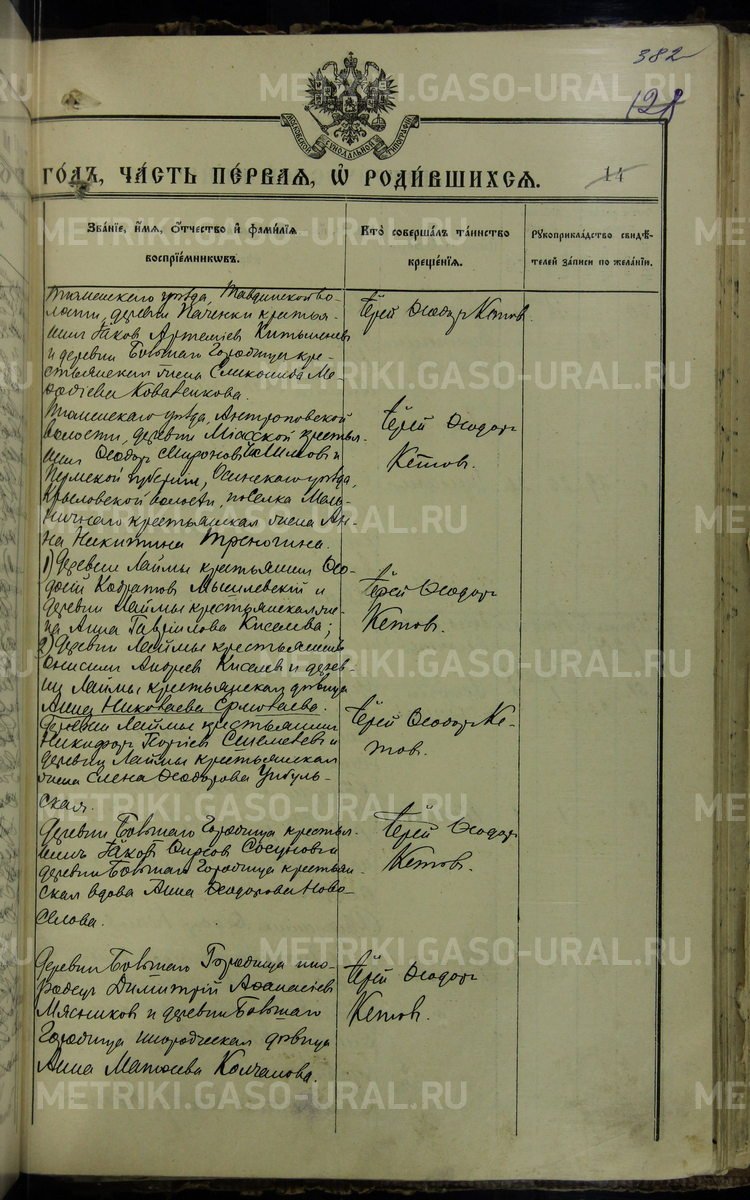 382
121
МОСКОВСКОЙ СѴНОДАЛЬНОЙ ТИПОГРАФІИ
ГО́ДЪ, ЧА́СТЬ ПЕ́РВАЯ, Ѡ҆ РОДИ́ВШИХСЯ.
11
Зва́нїе, и҆́мя, ѻ҆́тчество и҆ фами́лїя воспрїе́мникѡвъ.
Кто̀ соверша́лъ та́инство креще́нїя.
Рꙋкоприкла́дство свидѣ́телей за́писи по жела́нїю.
Тюменскаго уѣзда, Тавдинской во-
лости, деревни Паченки крестья-
нинъ Іаковъ Артеміевъ
и деревни Большаго Городища кре-
стьянская жена Ме-
ѳодіева Коваленкова.
Іерей Ѳеодоръ Кетовъ.
Тюменскаго уѣзда, Антроповской
волости, деревни Міасской крестья-
нинъ Ѳеодоръ Мироновъ и
Пермской губерніи, Осинскаго уѣзда,
Крыловской волости, поселка Мель-
ничнаго крестьянская жена Ан-
на Никитина Треногина.
Іерей Ѳеодоръ
Кетовъ.
1) Деревни Лаймы крестьянинъ Ѳео-
досій Кодратовъ Мысилевскій и
деревни Лаймы крестьянская же-
на Анна Гавріилова Киселева;
2) Деревни Лаймы крестьянинъ
Онисимъ Андреевъ Киселевъ и дерев-
ни Лаймы крестьянская дѣвица
Анна Николаева Ермолаева.
Іерей Ѳеодоръ
Кетовъ.
Деревни Лаймы крестьянинъ
Никифоръ Георгіевъ и
деревни Лаймы крестьянская
жена Елена Ѳеодорова Цибуль-
ская.
Іерей Ѳеодоръ Ке-
товъ.
Деревни Большаго Городища крестья-
нинъ Іаковъ Фирсовъ Сосуновъ и
деревни Большаго Городища крестьян-
ская вдова Анна Ѳеодорова Ново-
селова.
Іерей Ѳеодоръ
Кетовъ.
Деревни Большаго Городища ино-
родецъ Димитрій Аѳанасіевъ
Мясниковъ и деревни Большаго
Городища инородческая дѣвица
Анна Матѳеева Колчанова.
Іерей Ѳеодоръ
Кетовъ.
METRIKI.GASO-URAL.RU